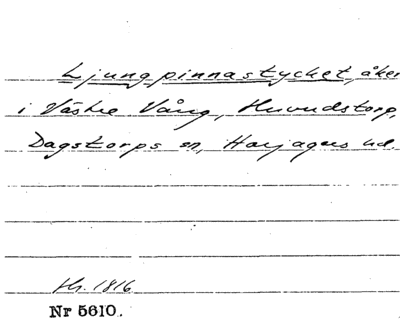 Ljungpinnastycket, åker
i Västre Vång, Huvudstorp,
Dagstorps sn, Harjagers hd.
Hs. 1816
Nr 5610.